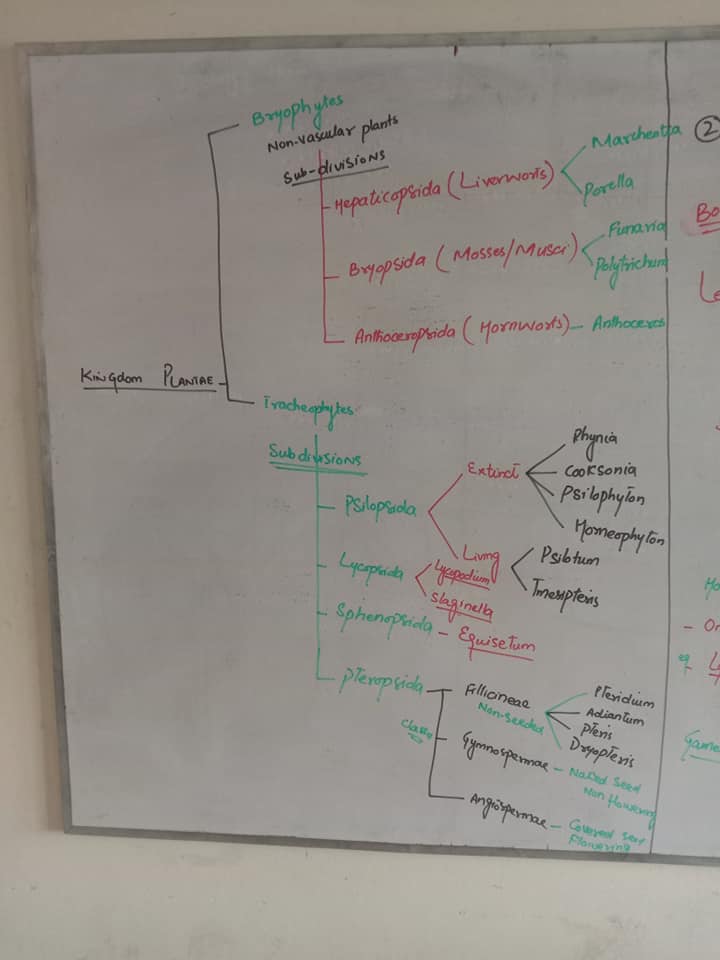 Bryophytes
Non-vascular plants
Sub-divisions
Hepaticopsida (Liverworts)
Marchentia
Porella
Bryopsida (Mosses/Musci)
Funaria
Polytrichum
Anthoceropsida (Hornworts) - Anthoceros
Kingdom PLANTAE
Tracheophytes
Subdivisions
Psilopsida
Extinct
Rhynia
Cooksonia
Psilophyton
Horneophyton
Living
Psilotum
Tmesipteris
Lycopsida
Lycopodium
Slaginella
Sphenopsida - Equisetum
Pteropsida
Classes
Fillicineae
Non-Seeded
Pteridium
Adiantum
Pteris
Dryopteris
Gymnospermae - Naked Seed
Non flowering
Angiospermae - Covered Seed
Flowering
2
Bo
Le
Ho
- Or
eg
Game